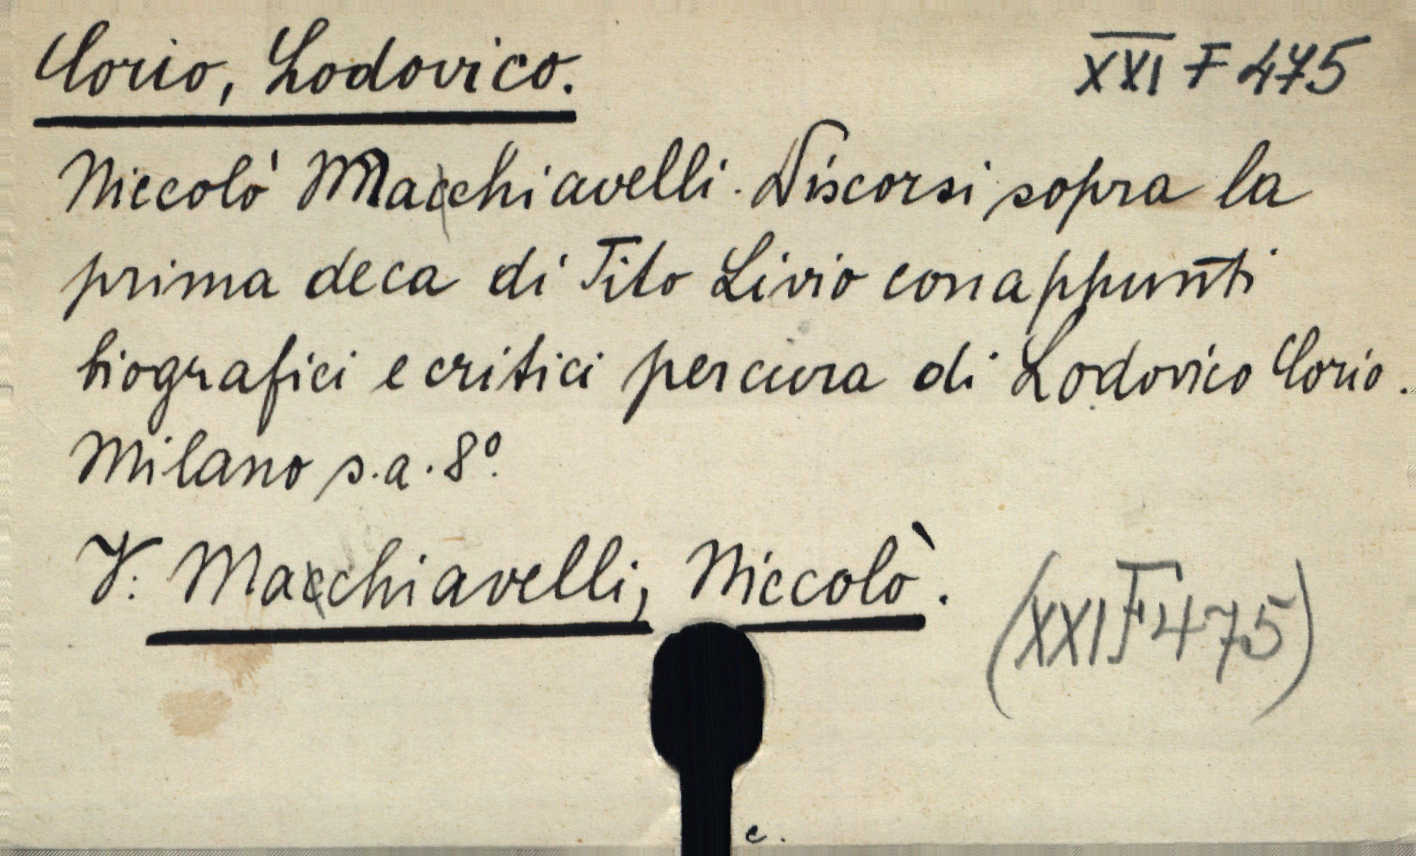 Corio, Lodovico.
XXI F 475
Niccolò Macchiavelli. Discorsi sopra la
prima deca di Tito Livio con appunti
biografici e critici per cura di Lodovico Corio.
Milano s.a. 8º.
V. Macchiavelli, Niccolò.
(XXI F 475)
c.